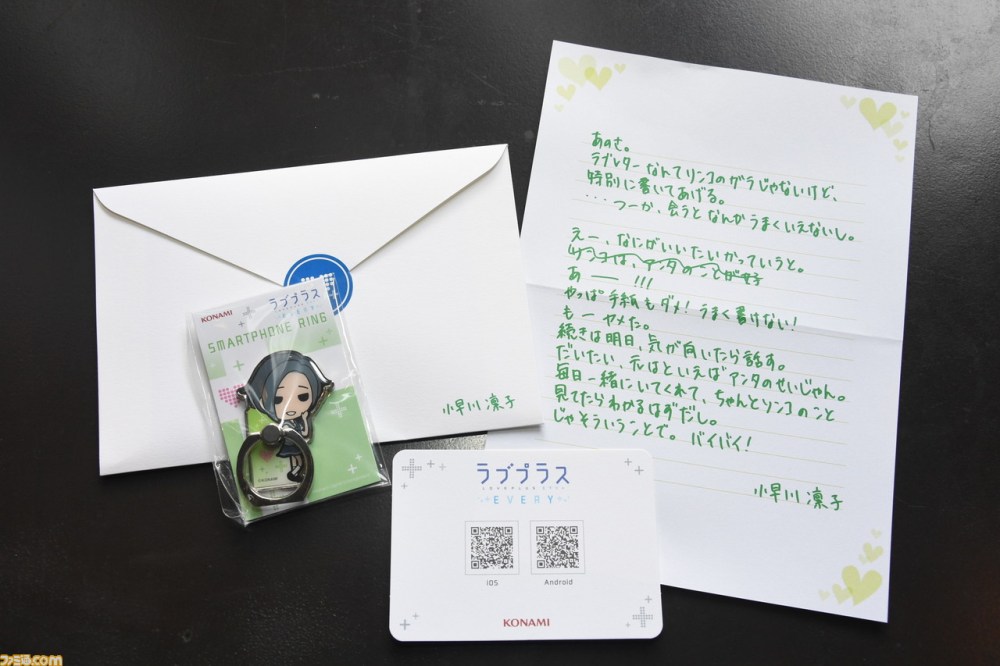 あのさ。
ラブレターなんてリンコのガラじゃないけど、
特別に書いてあげる。
...つーか、会うとなんかうまくいえないし。
えー、なにがいいたいかっていうと。
リンコは、アンタのことが好
あー!!!
やっぱ手紙もダメ!うまく書けない!
もーヤメた。
続きは明日、気が向いたら話す。
だいたい、元はといえばアンタのせいじゃん。
毎日一緒にいてくれて、ちゃんとリンコのこと
見てたらわかるはずだし。
じゃそういうことで。バイバイ!
小早川 凛子
小早川 凛子
KONAMI
ラブプラス
SMARTPHONE RING
ラブプラス
LOVEPLUS EVERY
EVERY
iOS
Android
KONAMI
ファミ通.com